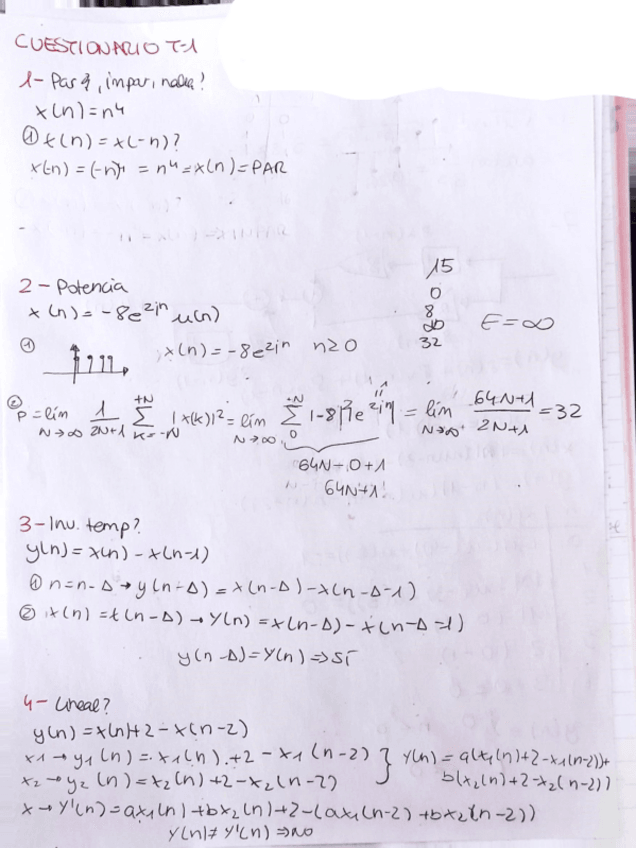 CUESTIONARIO T-1
1- Par, impar, nada?
x(n)=n4
① x(n)=x(-n)?
x(-n)=(-n)4 = n4=x(n)=PAR
2- Potencia
x(n)=-8e^2jn u(n)
15
0
8
∞
32
E=∞
① x(n)=-8e^2jn n≥0
② P=lim N→∞ 1/2N+1 +N Σ K=-N |x(k)|2= lim N→∞ +N Σ 0 |-8|2|e^2jn| = lim N→∞ 64N+1/2N+1 =32
1
64N-0+1
64N+1
3- Inv. temp?
y(n)=x(n)-x(n-1)
① n=n-Δ→y(n-Δ)=x(n-Δ)-x(n-Δ-1)
② x(n)=x(n-Δ)→Y(n)=x(n-Δ)-x(n-Δ-1)
y(n-Δ)=Y(n)⇒SÍ
4- Lineal?
y(n)=x(n)+2-x(n-2)
x1→y1(n)=x1(n)+2-x1(n-2) } Y(n)=a(x1(n)+2-x1(n-2))+
x2→y2(n)=x2(n)+2-x2(n-2) b(x2(n)+2-x2(n-2))
x→Y'(n)=ax1(n)+bx2(n)+2-(ax1(n-2)+bx2(n-2))
Y(n)≠Y'(n)⇒NO